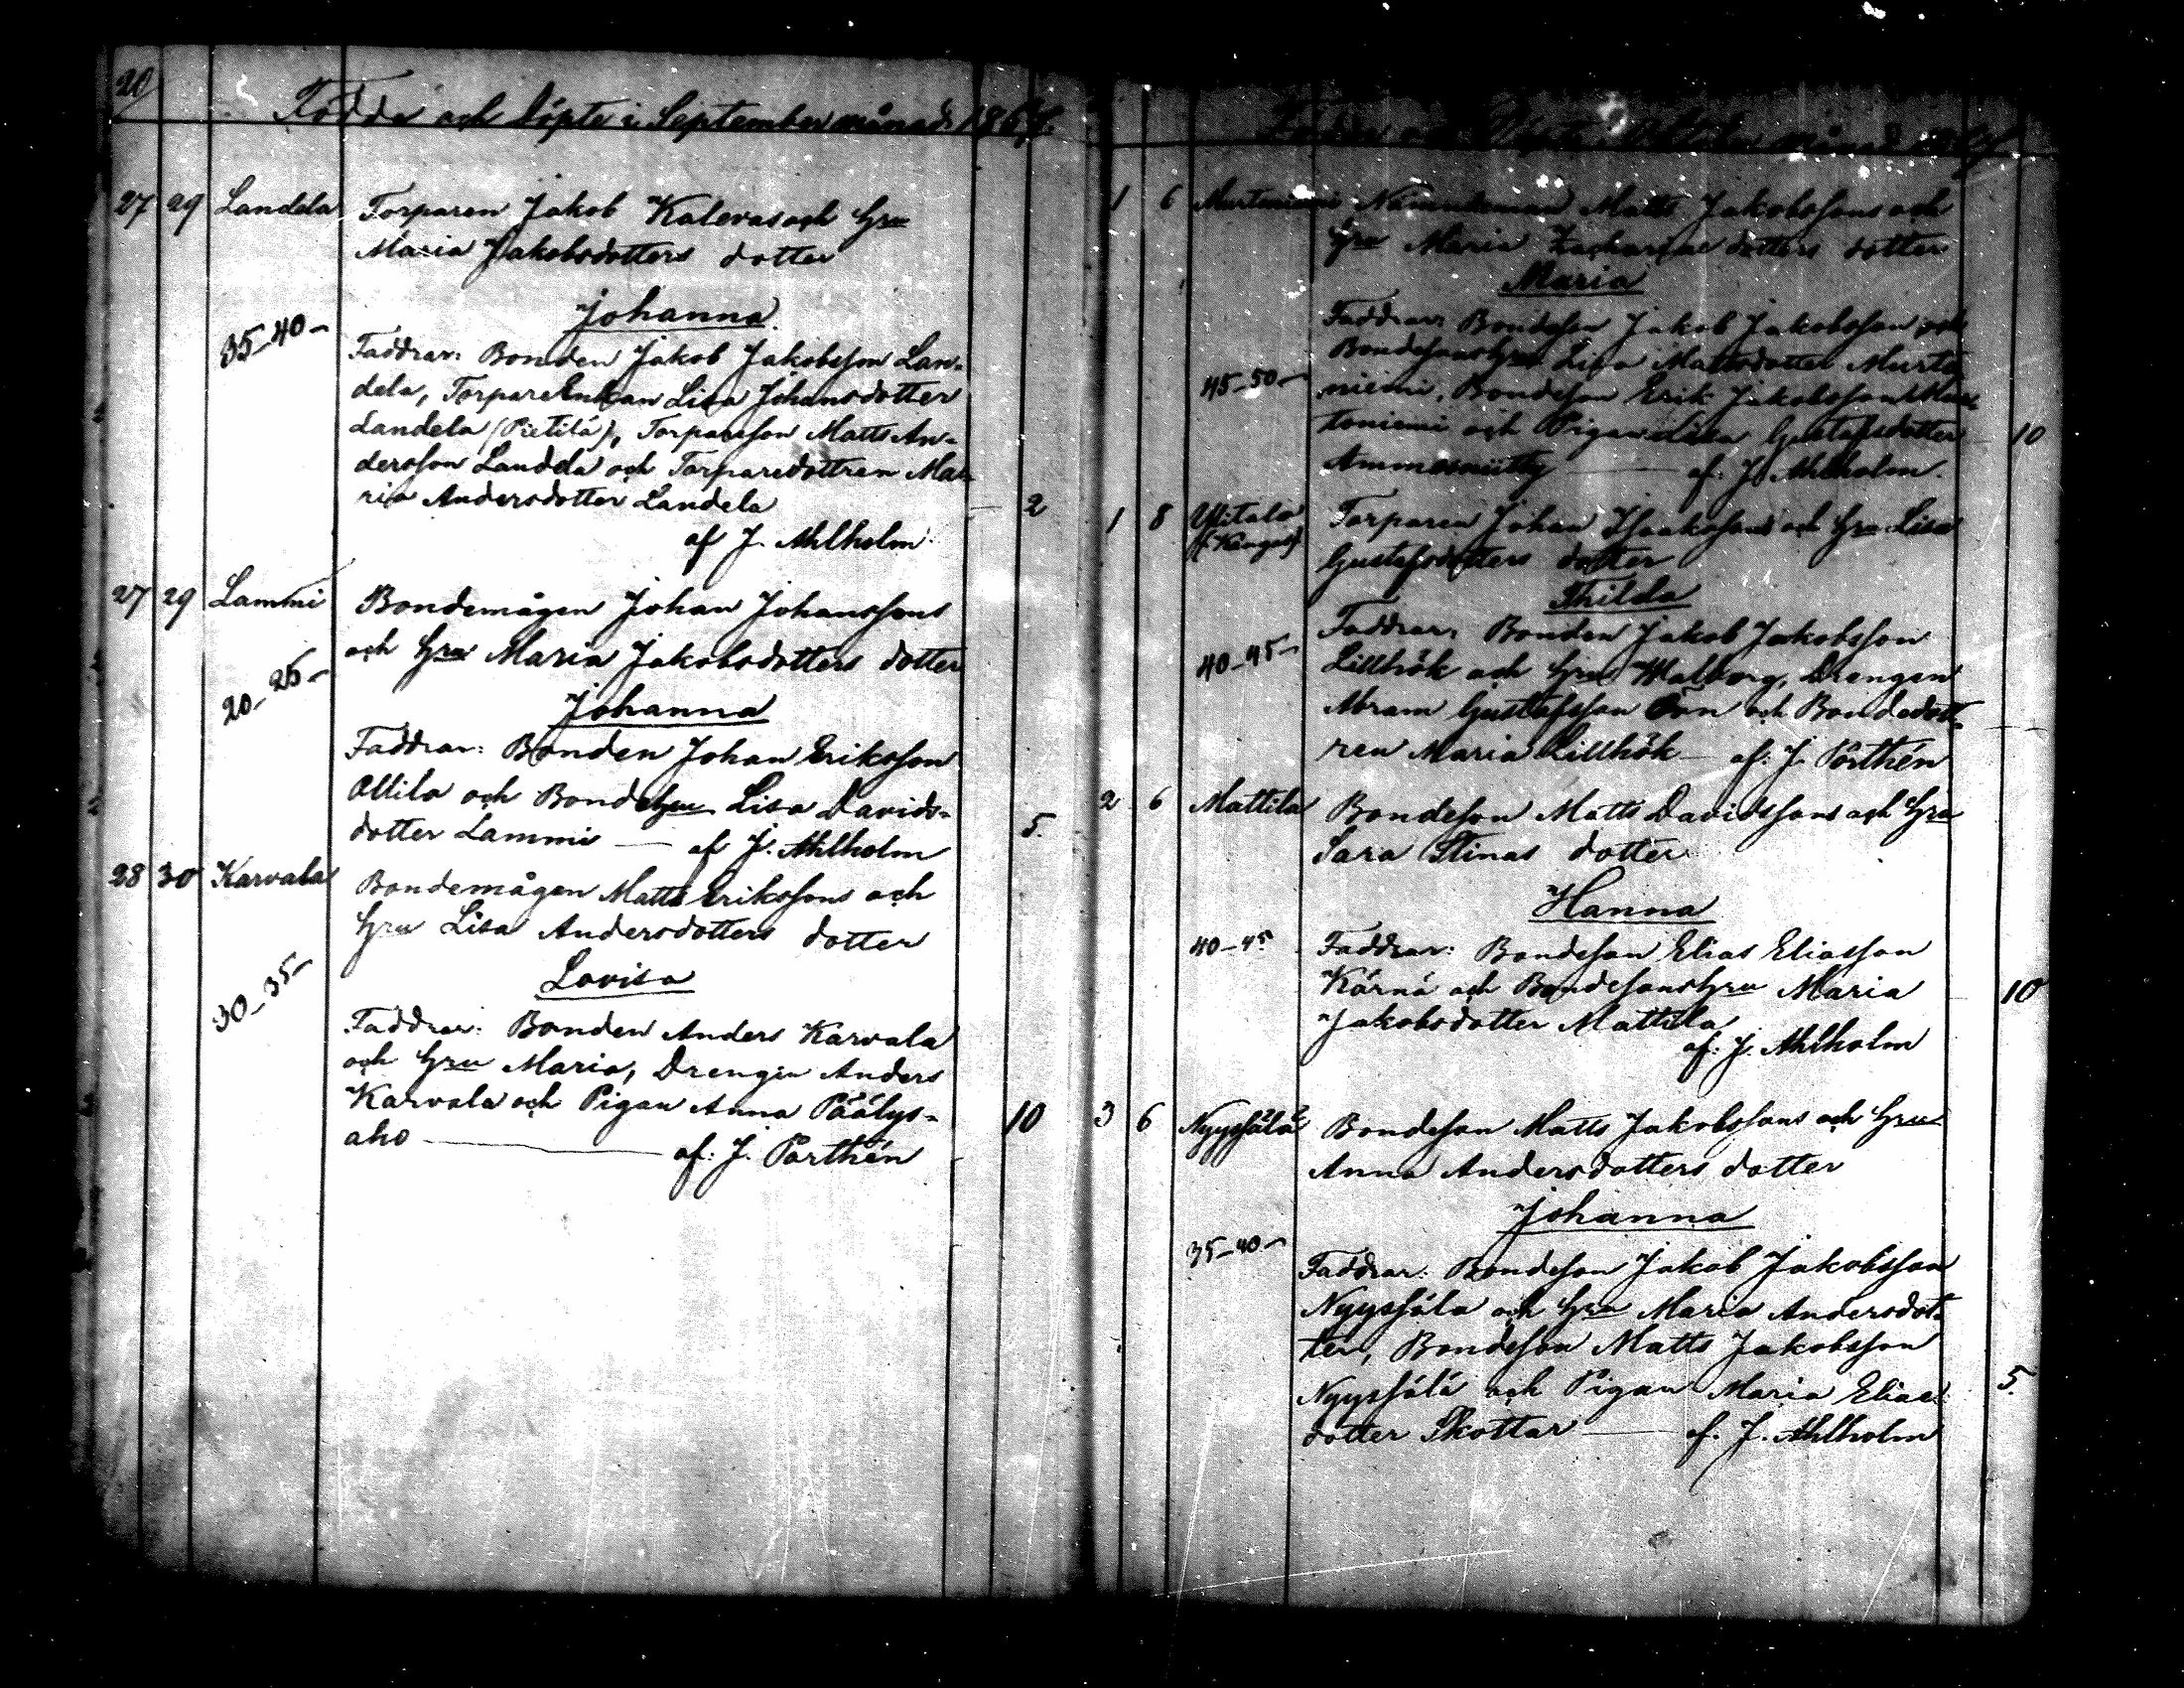 20
Födde och Döpte i September månad 186
27 29 Landela Torparen Jakob Kalevas och hru
Maria Jakobsdotters dotter
Johanna
35-40-
Faddrar: Bonden Jakob Jakobsson Lan-
dela, TorpareEnkan Lisa Johansdotter
Landela (Pietilä), Torparson Matts An-
dersson Landela och Torparedottren Ma-
ria Andersdotter Landela
2
af J. Ahlholm
27 29 Lammi Bondemågen Johan Johanssons
och hru Maria Jakobsdotters dotter
20-25-
Johanna
Faddrar: Bonden Johan Eriksson
Ollila och Bondehru Lisa Davids-
dotter Lammi — af J. Ahlholm
5.
28 30 Karvala Bondemågen Matts Erikssons och
hru Lisa Andersdotters dotter
Lovisa
30-35-
Faddrar: Bonden Anders Karvala
och hru Maria, Drengen Anders
Karvala och Pigan Anna Päälys-
aho — af: J. Porthén
10
Födde och Döpte i månad
1 6 Murtoniemi Nämndeman Matts Jakobssons och
hru Maria Zachariae dotters dotter
Maria
Faddrar: Bondeson Jakob Jakobsson och
Bondesonshru Lisa Mattsdotter Murto-
45-50-
niemi, Bondeson Erik Jakobsson Mur-
toniemi och Pigan Lisa Gustafsdotter
10
af: J. Ahlholm.
1 8 Torparen Johan Isaakssons och hru Lisa
Gustafsdotters dotter
Thilda
Faddrar: Bonden Jakob Jakobsson
40-45-
Lillhök och hru Walborg, Drengen
Abram Gustafsson och Bondedott-
ren Maria Lillhök — af: J. Porthén
2 6 Mattila Bondeson Matts Davidssons och hru
Sara Stinas dotter
Hanna
40-45
Faddrar: Bondeson Elias Eliasson
Kärnä och Bondesonshru Maria
10
Jakobsdotter Mattila
af: J. Ahlholm
3 6 Nyyssälä Bondeson Matts Jakobssons och hru
Anna Andersdotters dotter
Johanna
35-40-
Faddrar: Bondeson Jakob Jakobsson
Nyyssälä och hru Maria Andersdot-
ter, Bondeson Matts Jakobsson
Nyyssälä och Pigan Maria Elias
5.
dotter Skottar — af. J. Ahlholm